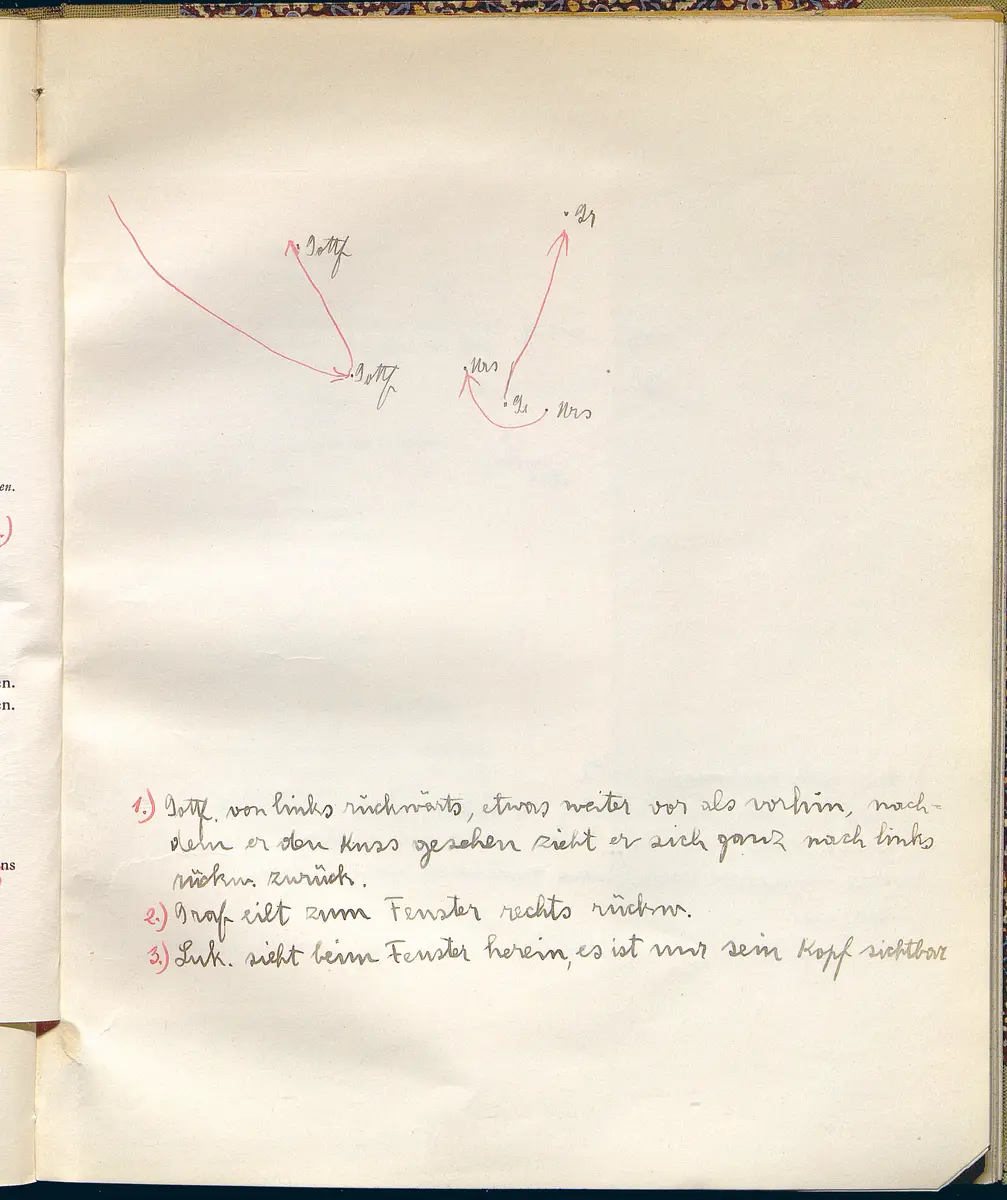 Gr
Gottf
Urs
Gottf
Gr
Urs
en.
.)
en.
en.
ns
1.) Gottf. von links rückwärts, etwas weiter vor als vorhin, nach=
dem er den Kuss gesehen zieht er sich ganz nach links
rückw. zurück.
2.) Graf eilt zum Fenster rechts rückw.
3.) Luk. sieht beim Fenster herein, es ist nur sein Kopf sichtbar